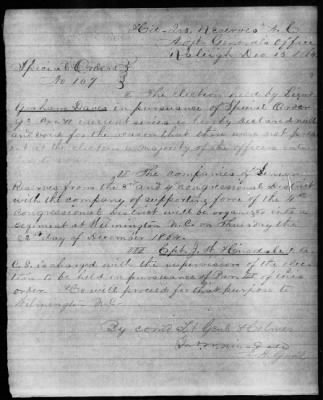 Hd. Qrs. Reserves N.C.
Adjt Generals Office
Raleigh Dec 13 1864
Special Orders
No 107
I. The election held by Lieut
Graham Daves in pursuance of Special Order
current series is hereby declared null
and void for the reason that there were not pres
ent at the election a majority of the officers
II The companies of Senior
Reserves from the 3d and 4th congressional District
with the company of supporting force of the 4th
Congressional District will be organized into a
regiment at Wilmington N.C. on Thursday the
22d day of December 1864.
III Capt. J. W. Hinsdale A.
is charged with the supervision of the elec
tion to be held in pursuance of Par II of this
order. He will proceed for that purpose to
Wilmington N.C.
By comd Lt Genl Holmes